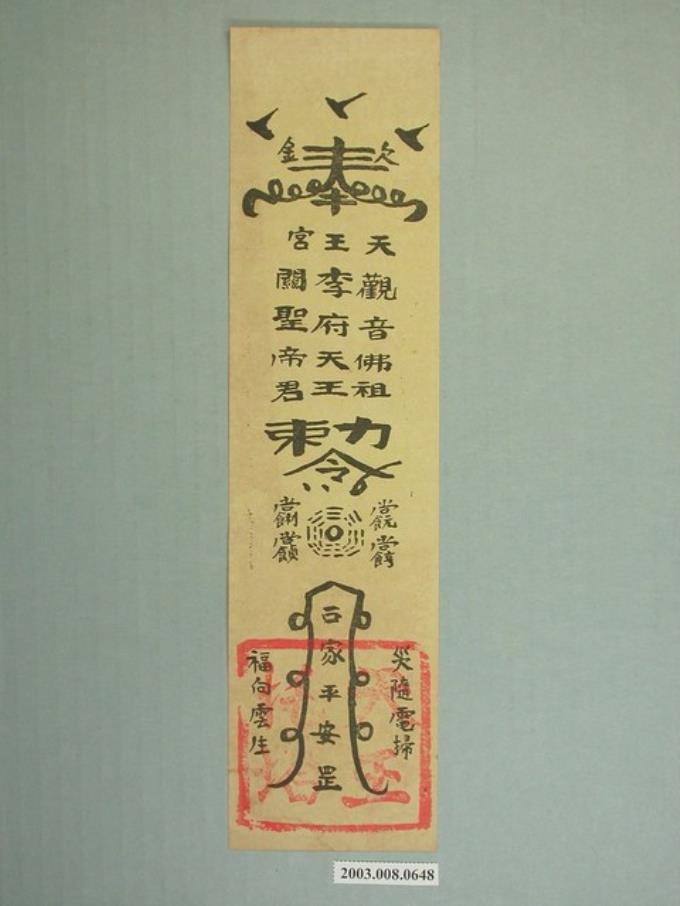 金 奉 欠
天王宮
觀音佛祖
李府天王
關聖帝君
勅令
災隨電掃
合家平安罡
福向雲生
2003.008.0648